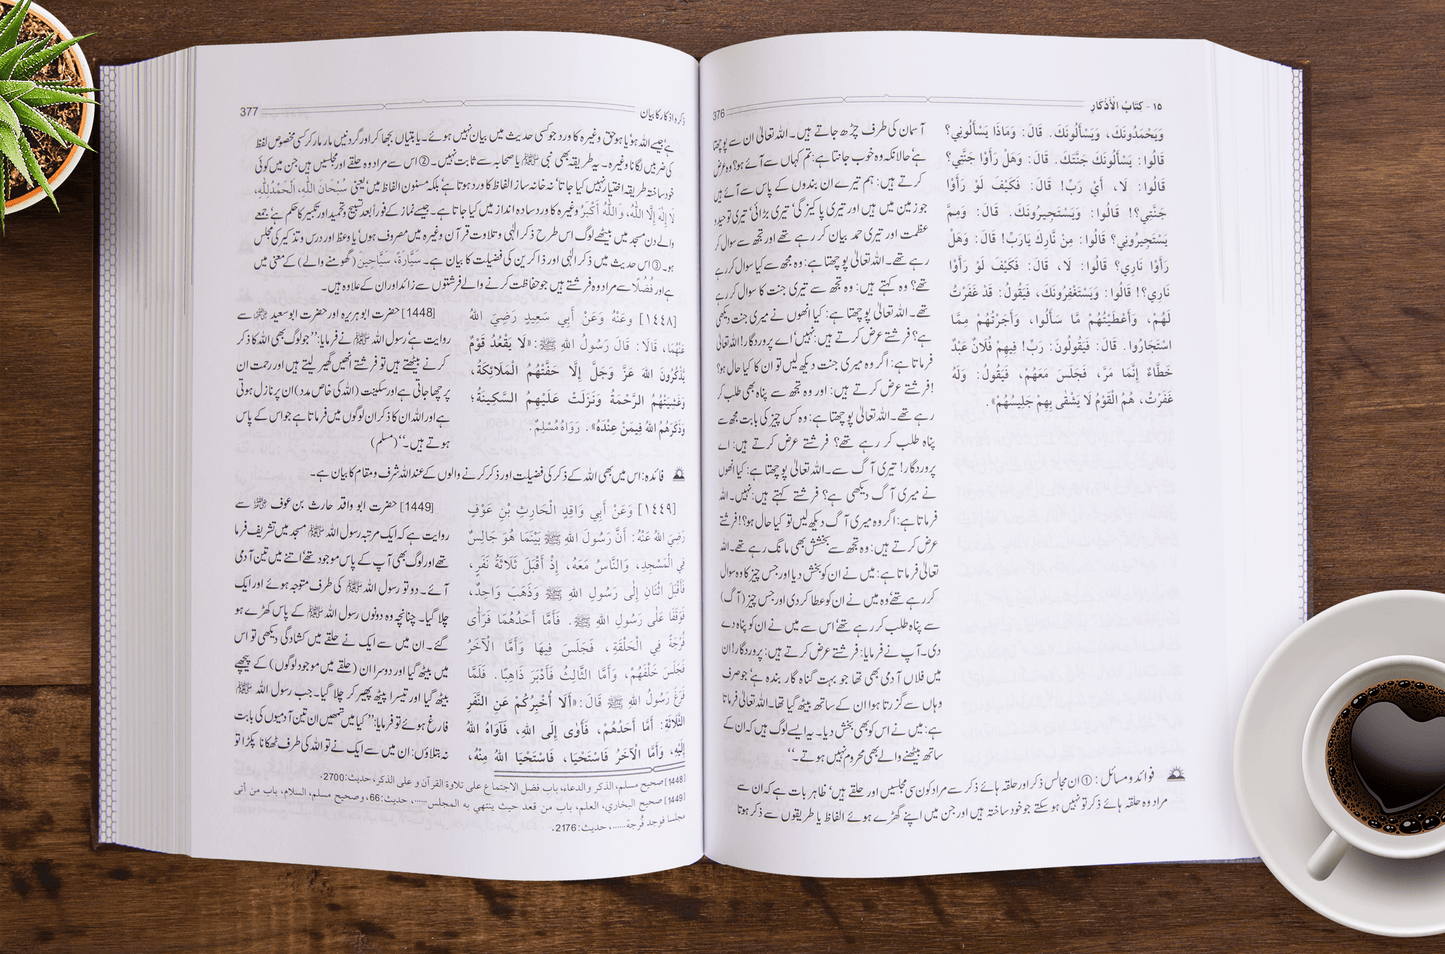 ١٥ - كِتَابُ الْأَذْكَارِ
376
وَيَحْمَدُونَكَ، وَيَسْأَلُونَكَ. قَالَ: وَمَاذَا يَسْأَلُونِي؟
قَالُوا: يَسْأَلُونَكَ جَنَّتَكَ. قَالَ: وَهَلْ رَأَوْا جَنَّتِي؟
قَالُوا: لَا، أَيْ رَبِّ! قَالَ: فَكَيْفَ لَوْ رَأَوْا
جَنَّتِي؟! قَالُوا: وَيَسْتَجِيرُونَكَ. قَالَ: وَمِمَّ
يَسْتَجِيرُونِي؟ قَالُوا: مِنْ نَّارِكَ يَارَبِّ! قَالَ: وَهَلْ
رَأَوْا نَارِي؟ قَالُوا: لَا، قَالَ: فَكَيْفَ لَوْ رَأَوْا
نَارِي؟! قَالُوا: وَيَسْتَغْفِرُونَكَ، فَيَقُولُ: قَدْ غَفَرْتُ
لَهُمْ، وَأَعْطَيْتُهُمْ مَّا سَأَلُوا، وَأَجَرْتُهُمْ مِمَّا
اسْتَجَارُوا. قَالَ: فَيَقُولُونَ: رَبِّ! فِيهِمْ فُلَانٌ عَبْدٌ
خَطَّاءٌ إِنَّمَا مَرَّ، فَجَلَسَ مَعَهُمْ، فَيَقُولُ: وَلَهُ
غَفَرْتُ، هُمُ الْقَوْمُ لَا يَشْقَى بِهِمْ جَلِيسُهُمْ».
آسمان کی طرف چڑھ جاتے ہیں۔ اللہ تعالیٰ ان سے پوچھتا
ہے' حالانکہ وہ خوب جانتا ہے: تم کہاں سے آئے ہو؟ وہ عرض
کرتے ہیں: ہم تیرے ان بندوں کے پاس سے آئے ہیں
جو زمین میں ہیں اور تیری پاکیزگی' تیری بڑائی' تیری توحید و
عظمت اور تیری حمد بیان کر رہے تھے اور تجھ سے سوال کر
رہے تھے۔ اللہ تعالیٰ پوچھتا ہے: وہ مجھ سے کیا سوال کر رہے
تھے؟ وہ کہتے ہیں: وہ تجھ سے تیری جنت کا سوال کر رہے
تھے۔ اللہ تعالیٰ پوچھتا ہے: کیا انھوں نے میری جنت دیکھی
ہے؟ فرشتے عرض کرتے ہیں: نہیں' اے پروردگار! اللہ تعالیٰ
فرماتا ہے: اگر وہ میری جنت دیکھ لیں تو ان کا کیا حال ہو؟
!فرشتے عرض کرتے ہیں: اور وہ تجھ سے پناہ بھی طلب کر
رہے تھے۔ اللہ تعالیٰ پوچھتا ہے: وہ کس چیز کی بابت مجھ سے
پناہ طلب کر رہے تھے؟ فرشتے عرض کرتے ہیں: اے
پروردگار! تیری آگ سے۔ اللہ تعالیٰ پوچھتا ہے: کیا انھوں
نے میری آگ دیکھی ہے؟ فرشتے کہتے ہیں: نہیں۔ اللہ
فرماتا ہے: اگر وہ میری آگ دیکھ لیں تو کیا حال ہو؟! فرشتے
عرض کرتے ہیں: وہ تجھ سے بخشش بھی مانگ رہے تھے۔ اللہ
تعالیٰ فرماتا ہے: میں نے ان کو بخش دیا اور جس چیز کا وہ سوال
کر رہے تھے' وہ میں نے ان کو عطا کر دی اور جس چیز (آگ)
سے پناہ طلب کر رہے تھے' اس سے میں نے ان کو پناہ دے
دی۔ آپ نے فرمایا: فرشتے عرض کرتے ہیں: پروردگار! ان
میں فلاں آدمی بھی تھا جو بہت گناہ گار بندہ ہے' جو صرف
وہاں سے گزر رہا ہوا ان کے ساتھ بیٹھ گیا تھا۔ اللہ تعالیٰ فرماتا
ہے: میں نے اس کو بھی بخش دیا۔ یہ ایسے لوگ ہیں کہ ان کے
ساتھ بیٹھنے والے بھی محروم نہیں ہوتے۔''
فوائد و مسائل: ① ان مجالس ذکر اور حلقہ ہائے ذکر سے مراد کون سی مجلسیں اور حلقے ہیں' ظاہر بات ہے کہ ان سے
مراد وہ حلقہ ہائے ذکر تو نہیں ہو سکتے جو خود ساختہ ہیں اور جن میں اپنے گھڑے ہوئے الفاظ یا طریقوں سے ذکر ہوتا
ذکر و اذکار کا بیان
377
ہے' جیسے اللہ ہو' یا ہو حق وغیرہ کا ورد جو کسی حدیث میں بیان نہیں ہوئے۔ یا بتیاں بجھا کر اور گردنیں مار مار کر کسی مخصوص لفظ
کی ضربیں لگانا وغیرہ۔ یہ طریقہ بھی نبی ﷺ یا صحابہ سے ثابت نہیں۔ ② اس سے مراد وہ حلقے اور مجلسیں ہیں جن میں کوئی
خود ساختہ طریقہ اختیار نہیں کیا جاتا' نہ خانہ ساز الفاظ کا ورد ہوتا ہے' بلکہ مسنون الفاظ میں' یعنی سُبْحَانَ اللَّهِ، اَلْحَمْدُلِلَّهِ،
لَا إِلٰهَ إِلَّا اللَّهُ، وَاللَّهُ أَكْبَرُ وغیرہ کا ورد سادہ انداز میں کیا جاتا ہے۔ جیسے نماز کے فوراً بعد تسبیح و تحمید اور تکبیر کا حکم ہے' جمعے
والے دن مسجد میں بیٹھے لوگ اس طرح ذکر الٰہی و تلاوت قرآن وغیرہ میں مصروف ہوں' یا وعظ اور درس و تذکیر کی مجلس
ہو۔ ③ اس حدیث میں ذکر الٰہی اور ذاکرین کی فضیلت کا بیان ہے۔ سَيَّارَةً، سَيَّاحِينَ (گھومنے والے) کے معنی میں
ہے اور فُضُلًا سے مراد وہ فرشتے ہیں جو حفاظت کرنے والے فرشتوں سے زائد اور ان کے علاوہ ہیں۔
[١٤٤٨] وَعَنْهُ وَعَنْ أَبِي سَعِيدٍ رَضِيَ اللهُ
عَنْهُمَا، قَالَا: قَالَ رَسُولُ اللهِ ﷺ: «لَا يَقْعُدُ قَوْمٌ
يَذْكُرُونَ اللهَ عَزَّ وَجَلَّ إِلَّا حَفَّتْهُمُ الْمَلَائِكَةُ،
وَغَشِيَتْهُمُ الرَّحْمَةُ وَنَزَلَتْ عَلَيْهِمُ السَّكِينَةُ؛
وَذَكَرَهُمُ اللهُ فِيمَنْ عِنْدَهُ». رَوَاهُ مُسْلِمٌ.
[1448] حضرت ابوہریرہ اور حضرت ابوسعید ﷺ سے
روایت ہے' رسول اللہ ﷺ نے فرمایا: ''جو لوگ بھی اللہ کا ذکر
کرنے بیٹھتے ہیں تو فرشتے انھیں گھیر لیتے ہیں اور رحمت ان
پر چھا جاتی ہے اور سکینت (اللہ کی خاص مدد) ان پر نازل ہوتی
ہے اور اللہ ان کا ذکر ان لوگوں میں فرماتا ہے جو اس کے پاس
ہوتے ہیں۔'' (مسلم)
فائدہ: اس میں بھی اللہ کے ذکر کی فضیلت اور ذکر کرنے والوں کے عنداللہ شرف و مقام کا بیان ہے۔
[١٤٤٩] وَعَنْ أَبِي وَاقِدٍ الْحَارِثِ بْنِ عَوْفٍ
رَضِيَ اللهُ عَنْهُ: أَنَّ رَسُولَ اللهِ ﷺ بَيْنَمَا هُوَ جَالِسٌ
فِي الْمَسْجِدِ، وَالنَّاسُ مَعَهُ، إِذْ أَقْبَلَ ثَلَاثَةُ نَفَرٍ،
فَأَقْبَلَ اثْنَانِ إِلَى رَسُولِ اللهِ ﷺ وَذَهَبَ وَاحِدٌ،
فَوَقَفَا عَلَى رَسُولِ اللهِ ﷺ. فَأَمَّا أَحَدُهُمَا فَرَأَى
فُرْجَةً فِي الْحَلْقَةِ، فَجَلَسَ فِيهَا وَأَمَّا الْآخَرُ
فَجَلَسَ خَلْفَهُمْ، وَأَمَّا الثَّالِثُ فَأَدْبَرَ ذَاهِبًا. فَلَمَّا
فَرَغَ رَسُولُ اللهِ ﷺ قَالَ: «أَلَا أُخْبِرُكُمْ عَنِ النَّفَرِ
الثَّلَاثَةِ: أَمَّا أَحَدُهُمْ، فَأَوَى إِلَى اللهِ، فَآوَاهُ اللهُ
إِلَيْهِ، وَأَمَّا الْآخَرُ فَاسْتَحْيَا، فَاسْتَحْيَا اللهُ مِنْهُ،
[1449] حضرت ابو واقد حارث بن عوف ﷺ سے
روایت ہے کہ ایک مرتبہ رسول اللہ ﷺ مسجد میں تشریف فرما
تھے اور لوگ بھی آپ کے پاس موجود تھے' اتنے میں تین آدمی
آئے۔ دو تو رسول اللہ ﷺ کی طرف متوجہ ہوئے اور ایک
چلا گیا۔ چنانچہ وہ دونوں رسول اللہ ﷺ کے پاس کھڑے ہو
گئے۔ ان میں سے ایک نے حلقے میں کشادگی دیکھی تو اس
میں بیٹھ گیا اور دوسرا ان (حلقے میں موجود لوگوں) کے پیچھے
بیٹھ گیا اور تیسرا پیٹھ پھیر کر چلا گیا۔ جب رسول اللہ ﷺ
فارغ ہوئے تو فرمایا: ''کیا میں تمھیں ان تین آدمیوں کی بابت
نہ بتلاؤں: ان میں سے ایک نے تو اللہ کی طرف ٹھکانا پکڑا تو
[1448] صحيح مسلم، الذكر والدعاء، باب فضل الاجتماع على تلاوة القرآن و على الذكر، حديث:2700.
[1449] صحيح البخاري، العلم، باب من قعد حيث ينتهي به المجلس......، حديث:66، وصحيح مسلم، السلام، باب من أتى
مجلسا فوجد فُرجة......، حديث:2176.